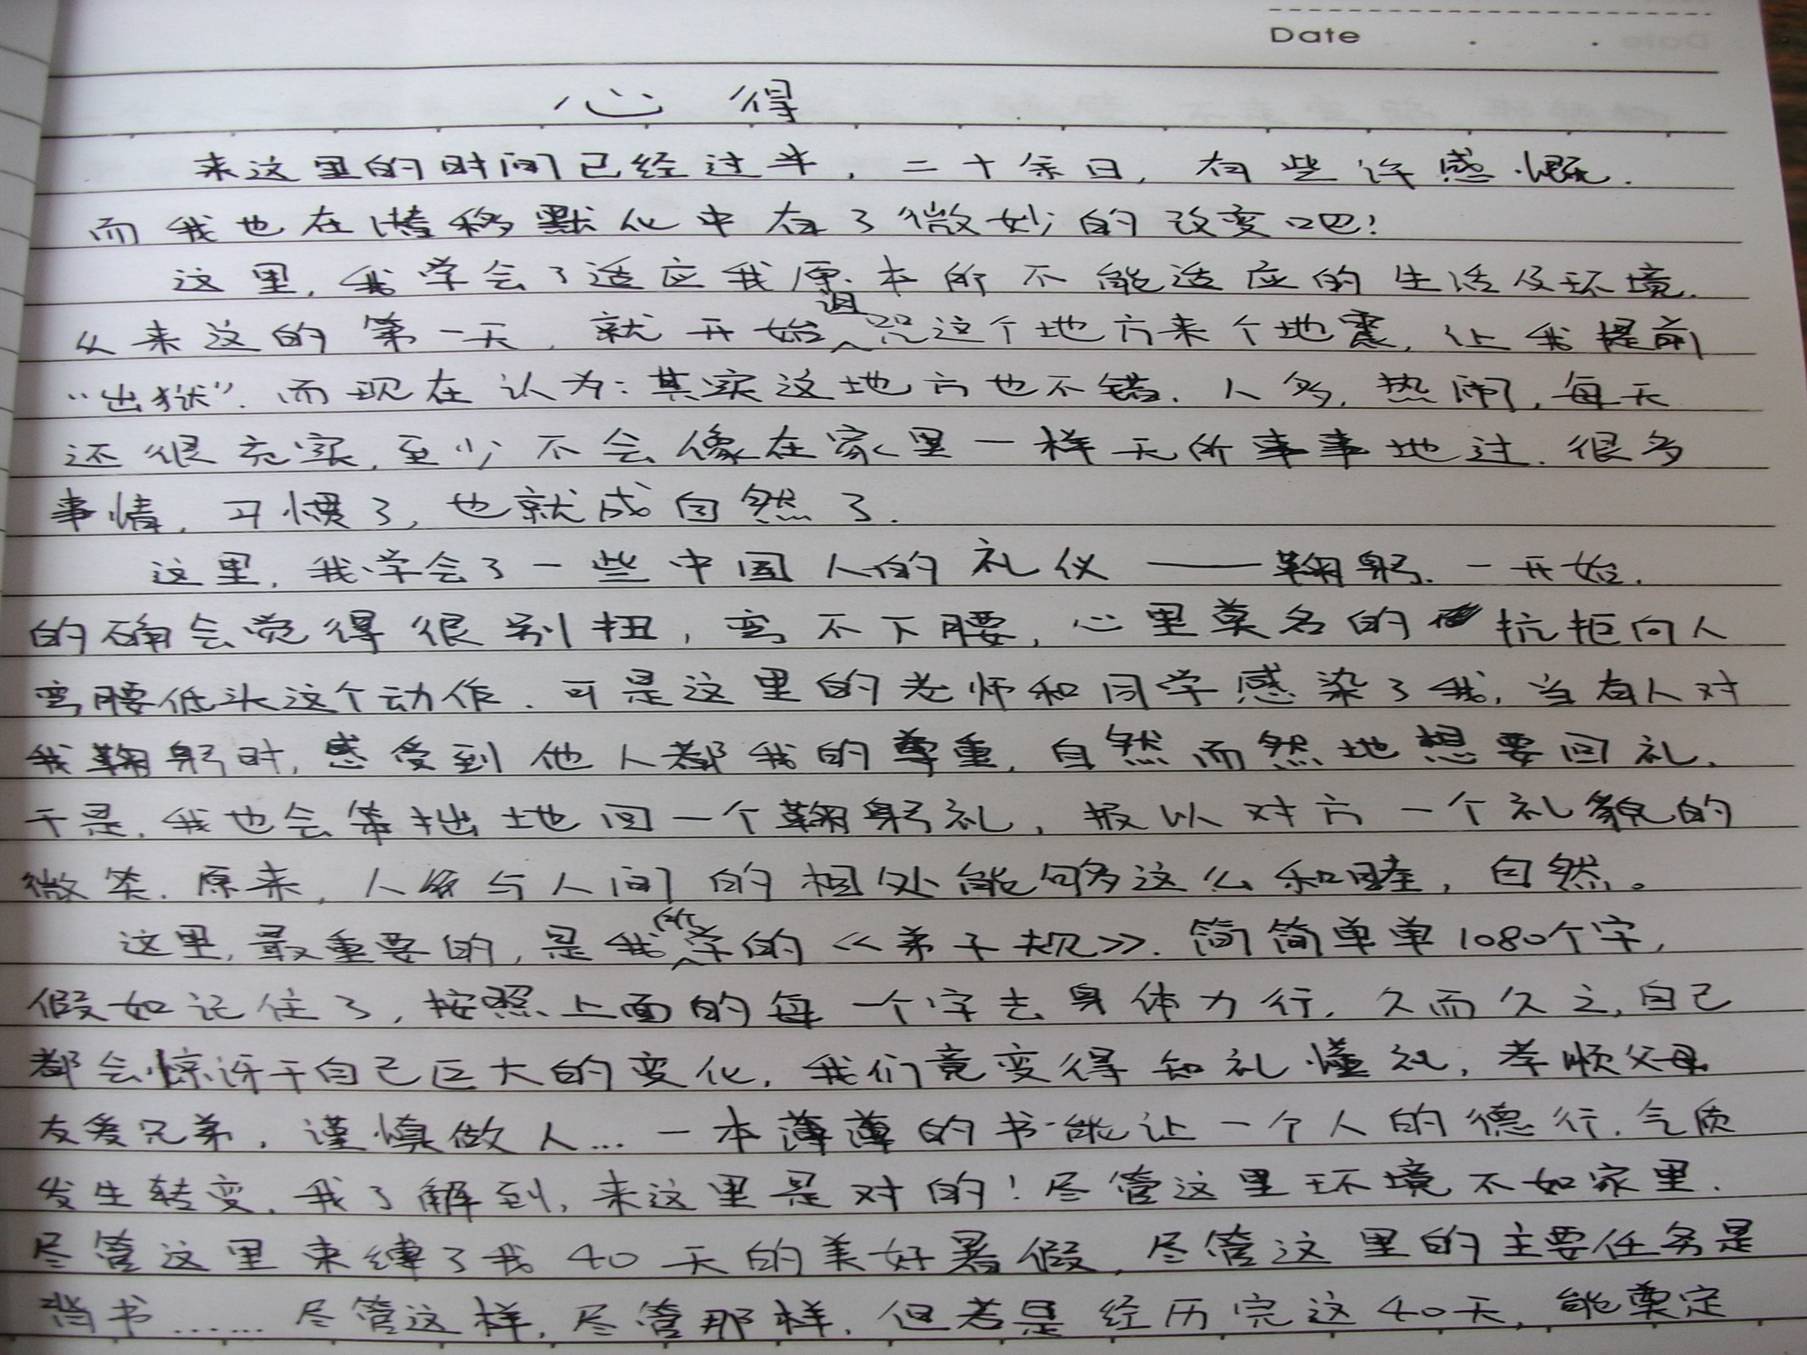 Date
心得
来这里的时间已经过半，二十余日，有些许感慨．
而我也在潜移默化中有了微妙的改变吧！
这里，我学会了适应我原本所不能适应的生活及环境．
从来这的第一天，就开始诅咒这个地方来个地震，让我提前
“出狱”．而现在认为：其实这地方也不错．人多，热闹，每天
还很充实，至少不会像在家里一样无所事事地过．很多
事情，习惯了，也就成自然了．
这里，我学会了一些中国人的礼仪——鞠躬．一开始．
的确会觉得很别扭，弯不下腰，心里莫名的抗拒向人
弯腰低头这个动作．可是这里的老师和同学感染了我，当有人对
我鞠躬时，感受到他人都我的尊重，自然而然地想要回礼．
于是，我也会笨拙地回一个鞠躬礼，报以对方一个礼貌的
微笑．原来，人与人间的相处能够这么和睦，自然。
这里，最重要的，是我所学的《弟子规》．简简单单1080个字，
假如记住了，按照上面的每一个字去身体力行，久而久之，自己
都会惊讶于自己巨大的变化，我们竟变得知礼懂礼，孝顺父母
友爱兄弟，谨慎做人...一本薄薄的书能让一个人的德行．气质
发生转变，我了解到，来这里是对的！尽管这里环境不如家里．
尽管这里束缚了我40天的美好暑假，尽管这里的主要任务是
背书......尽管这样，尽管那样，但若是经历完这40天，能奠定